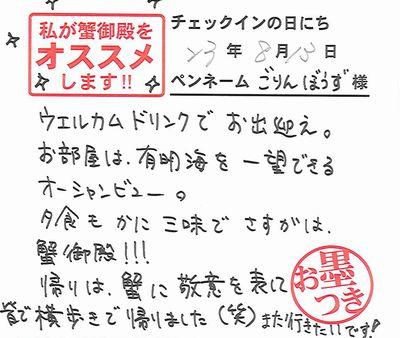 私が蟹御殿を
オススメ
します!!
チェックインの日にち
23年8月13日
ペンネーム ごりんぼうず様
ウェルカムドリンクで お出迎え。
お部屋は、有明海を一望できる
オーシャンビュー。
夕食もかに三味で さすがは、
蟹御殿!!!
帰りは、蟹に敬意を表して
皆で横歩きで帰りました(笑)また行きたいです!
お墨つき